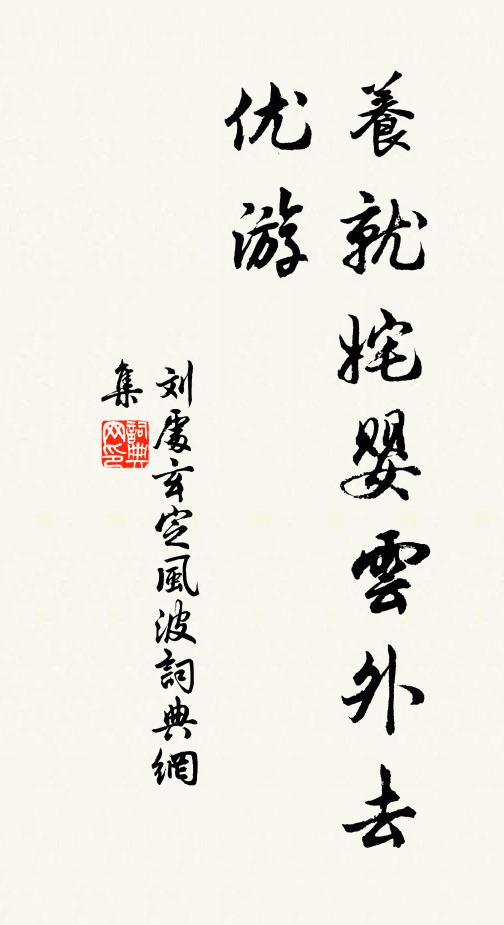 養就姹嬰雲外去
优游
刘處玄定風波詞典網
集
詞典
网印